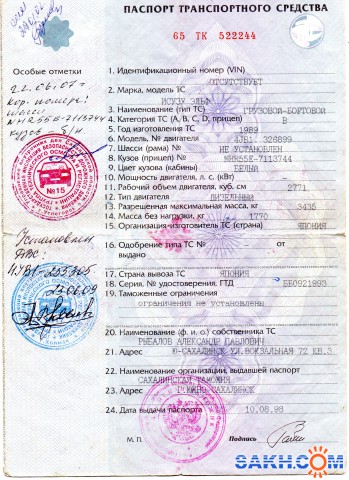 ПАСПОРТ ТРАНСПОРТНОГО СРЕДСТВА
65 ТК 522244
Особые отметки
22.06.07г
кор. номера:
шасси
NHR55E-7113744
кузов б/н
№15
Установлен
ДВС
4JB1-255365
23.06.09
1. Идентификационный номер (VIN)
ОТСУТСТВУЕТ
2. Марка, модель ТС
ИСУЗУ ЭЛЬФ
3. Наименование (тип ТС) ГРУЗОВОЙ-БОРТОВОЙ
4. Категория ТС (A, B, C, D, прицеп) B
5. Год изготовления ТС 1989
6. Модель, № двигателя 4JB1 326899
7. Шасси (рама) № НЕ УСТАНОВЛЕН
8. Кузов (прицеп) № NHR55E-7113744
9. Цвет кузова (кабины) БЕЛЫЙ
10. Мощность двигателя, л. с. (кВт)
11. Рабочий объем двигателя, куб. см 2771
12. Тип двигателя ДИЗЕЛЬНЫЙ
13. Разрешенная максимальная масса, кг 3435
14. Масса без нагрузки, кг 1770
15. Организация-изготовитель ТС (страна) ЯПОНИЯ
16. Одобрение типа ТС № от
выдано
17. Страна вывоза ТС ЯПОНИЯ
18. Серия, № удостоверения, ГТД ББ0921993
19. Таможенные ограничения
ограничения не установлены
20. Наименование (ф. и. о.) собственника ТС
РЫБАЛОВ АЛЕКСАНДР ПАВЛОВИЧ
21. Адрес Ю-САХАЛИНСК УЛ.ВОКЗАЛЬНАЯ 72 КВ.3
22. Наименование организации, выдавшей паспорт
САХАЛИНСКАЯ ТАМОЖНЯ
23. Адрес Г.ЮЖНО САХАЛИНСК
24. Дата выдачи паспорта 10.08.98
М. П. Подпись
SAKH.COM